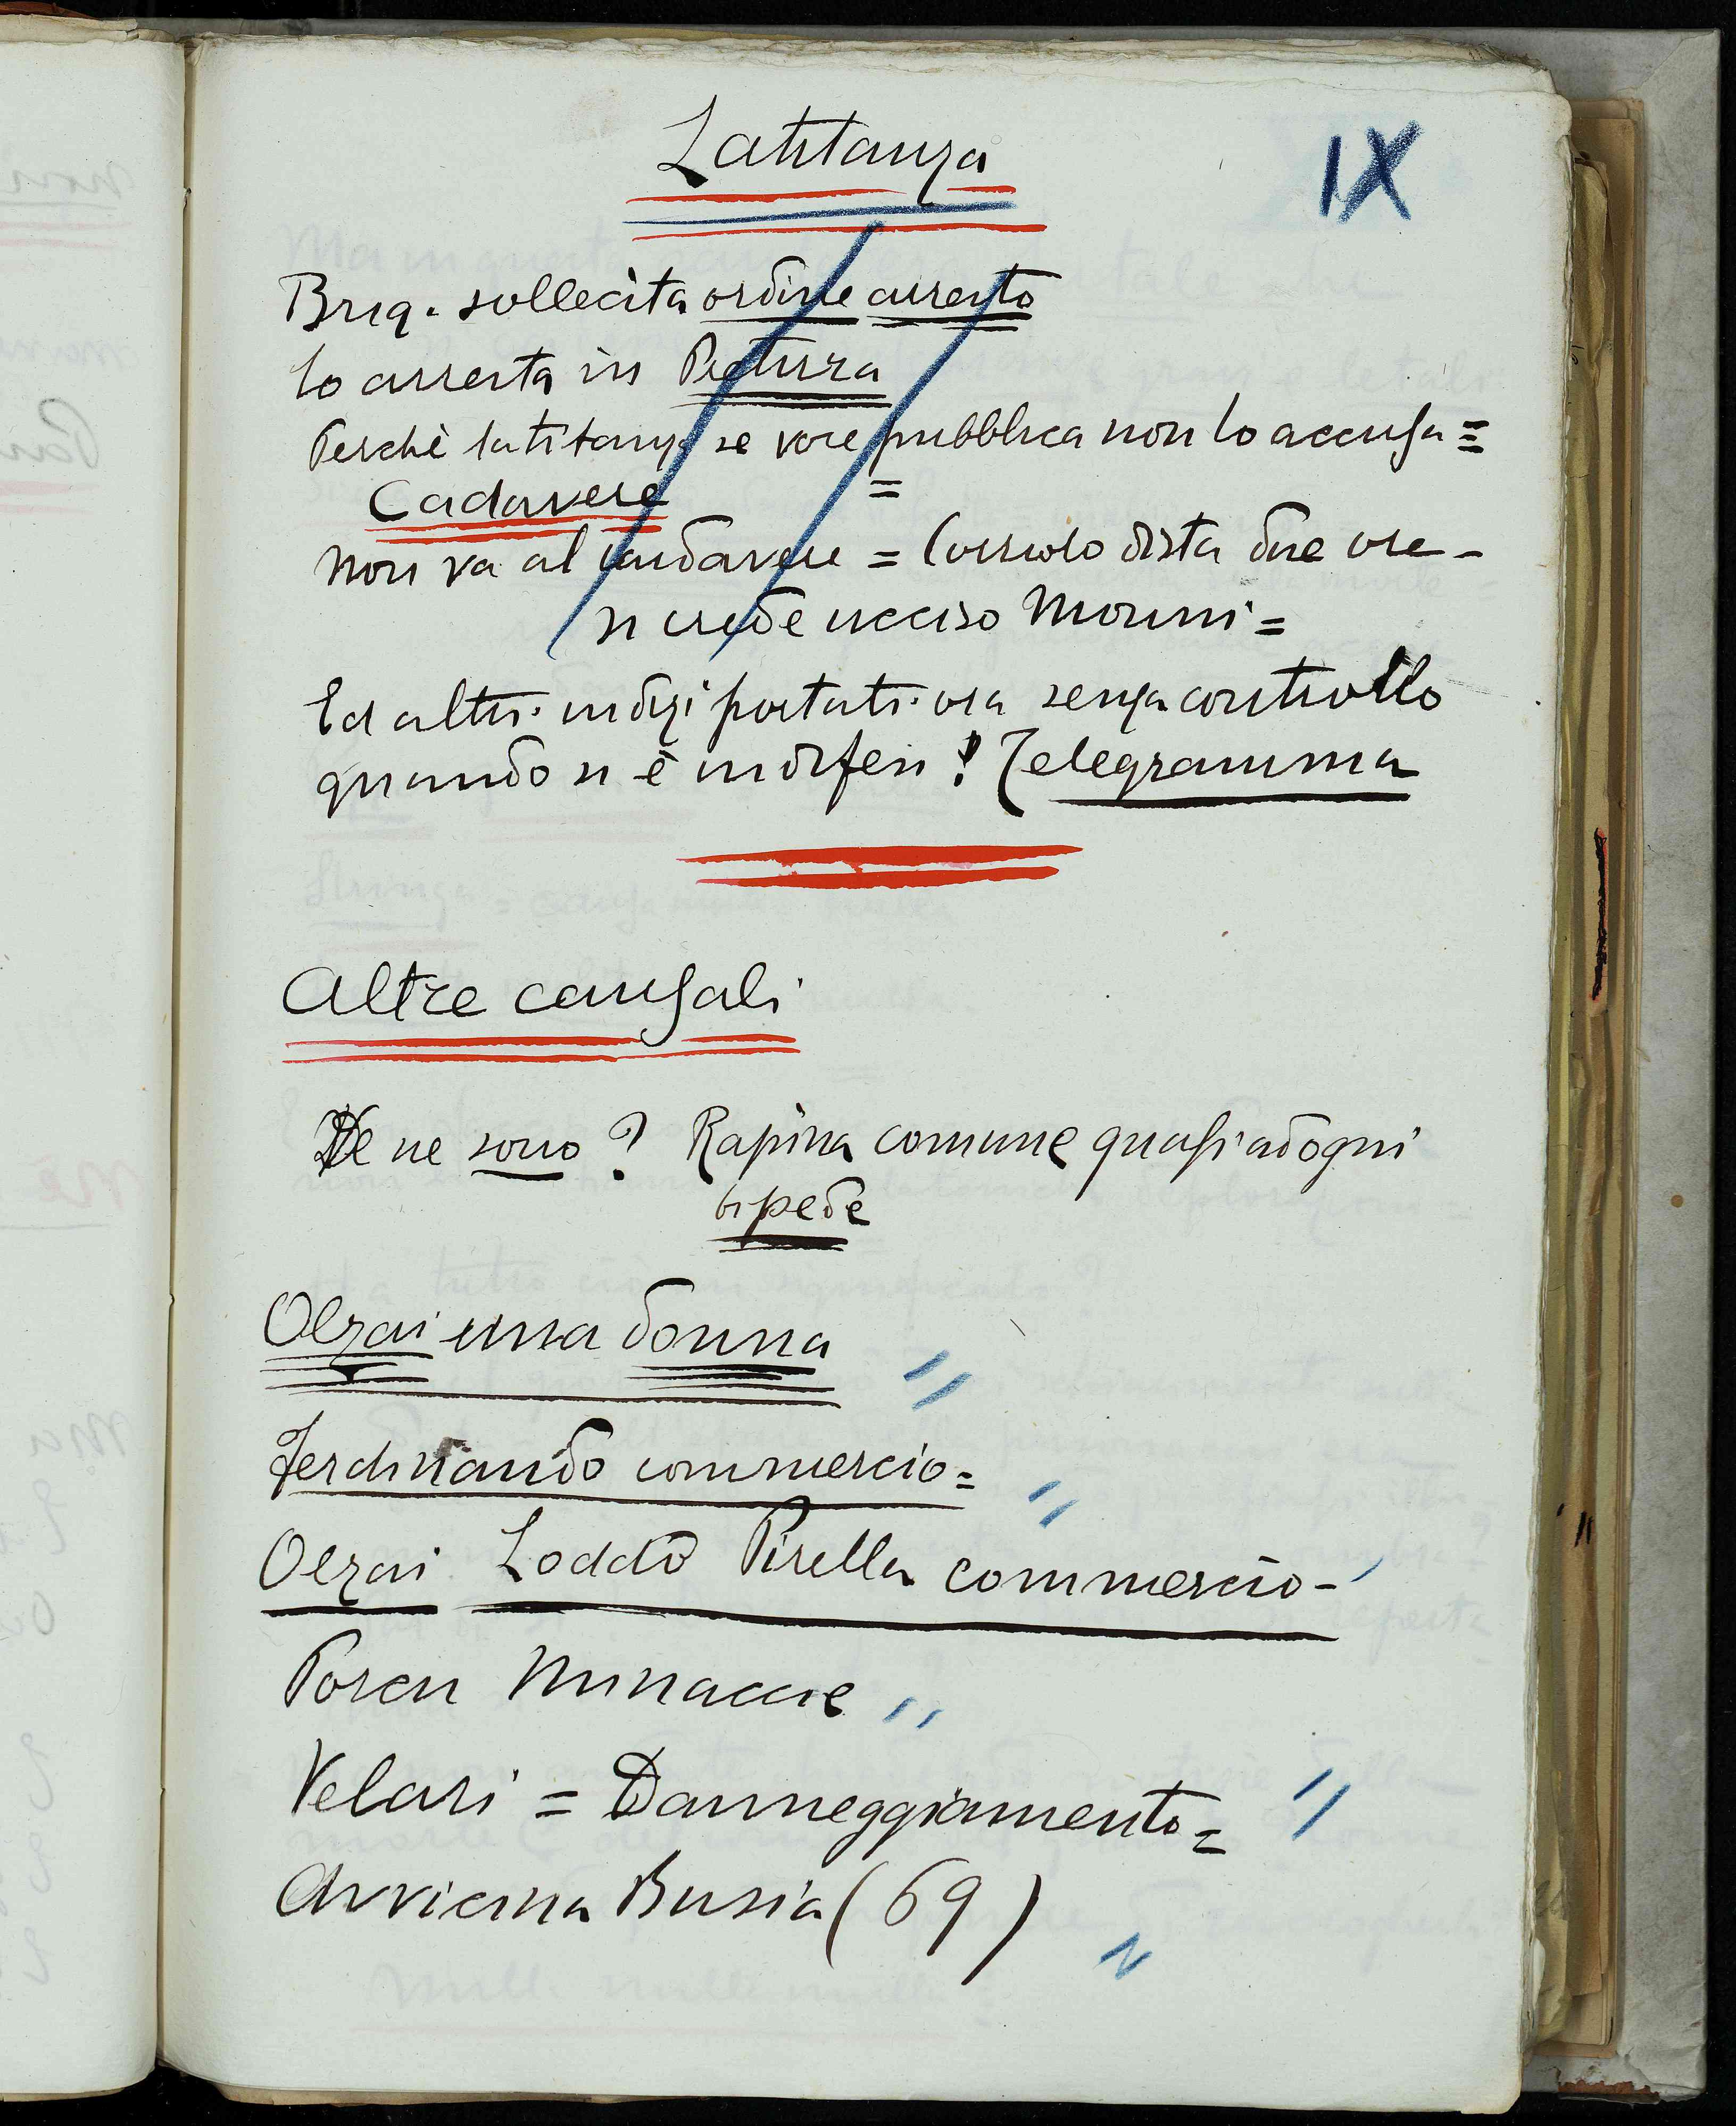 Latitanza
IX
Brig. sollecita ordine arresto
lo arresta in Pretura
Perchè latitanza se voce pubblica non lo accusa =
=
Cadavere
non va al cadavere = Corsiolo dista due ore -
si crede ucciso Monni =
Ed altri indizi portati ora senza controllo
quando si è indifesi! Telegramma
Altre causali
Ve ne sono? Rapina comune quasi ad ogni
bipede
Olzai una donna
Ferdinando commercio =
Olzai Loddo Pirella commercio -
Porcu Minaccie
Velari = Danneggiamento =
Avvicina Busia (69)